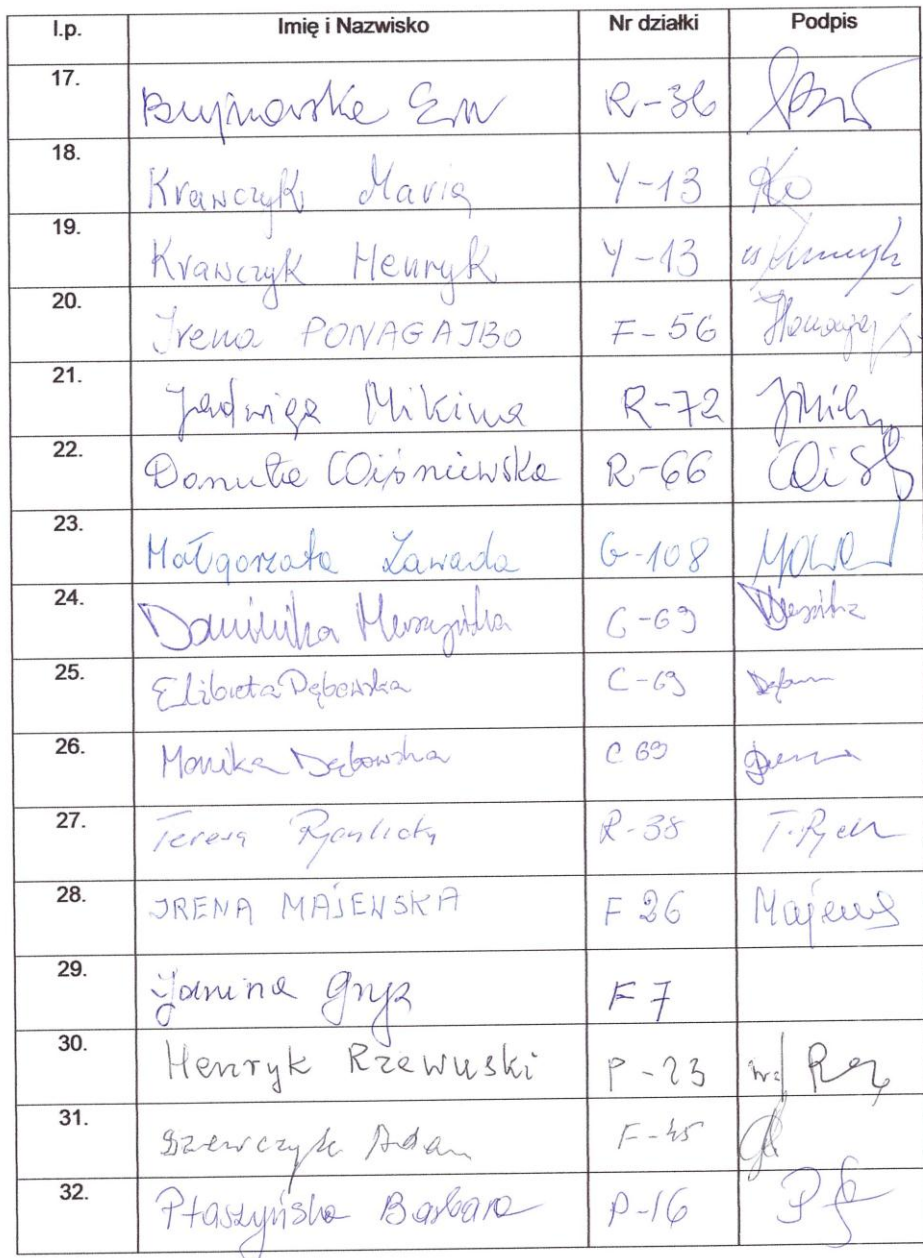 l.p. Imię i Nazwisko Nr działki Podpis
17. Bujnowska Ewa R-36
18. Krawczyk Maria Y-13
19. Krawczyk Henryk Y-13
20. Irena PONAGAJBO F-56
21. Jadwiga Mikiwa R-72
22. Danuta Wiśniewska R-66
23. Małgorzata Zawada G-108
24. Dominika C-69
25. Elżbieta Dębowska C-69
26. Monika Dębowska C 69
27. Teresa R-38
28. IRENA MAJEWSKA F 26 Majews
29. Janina Gryz F 7
30. Henryk Rzewuski P-23
31. Szewczyk Adam F-45
32. Ptaszyńska Barbara P-16